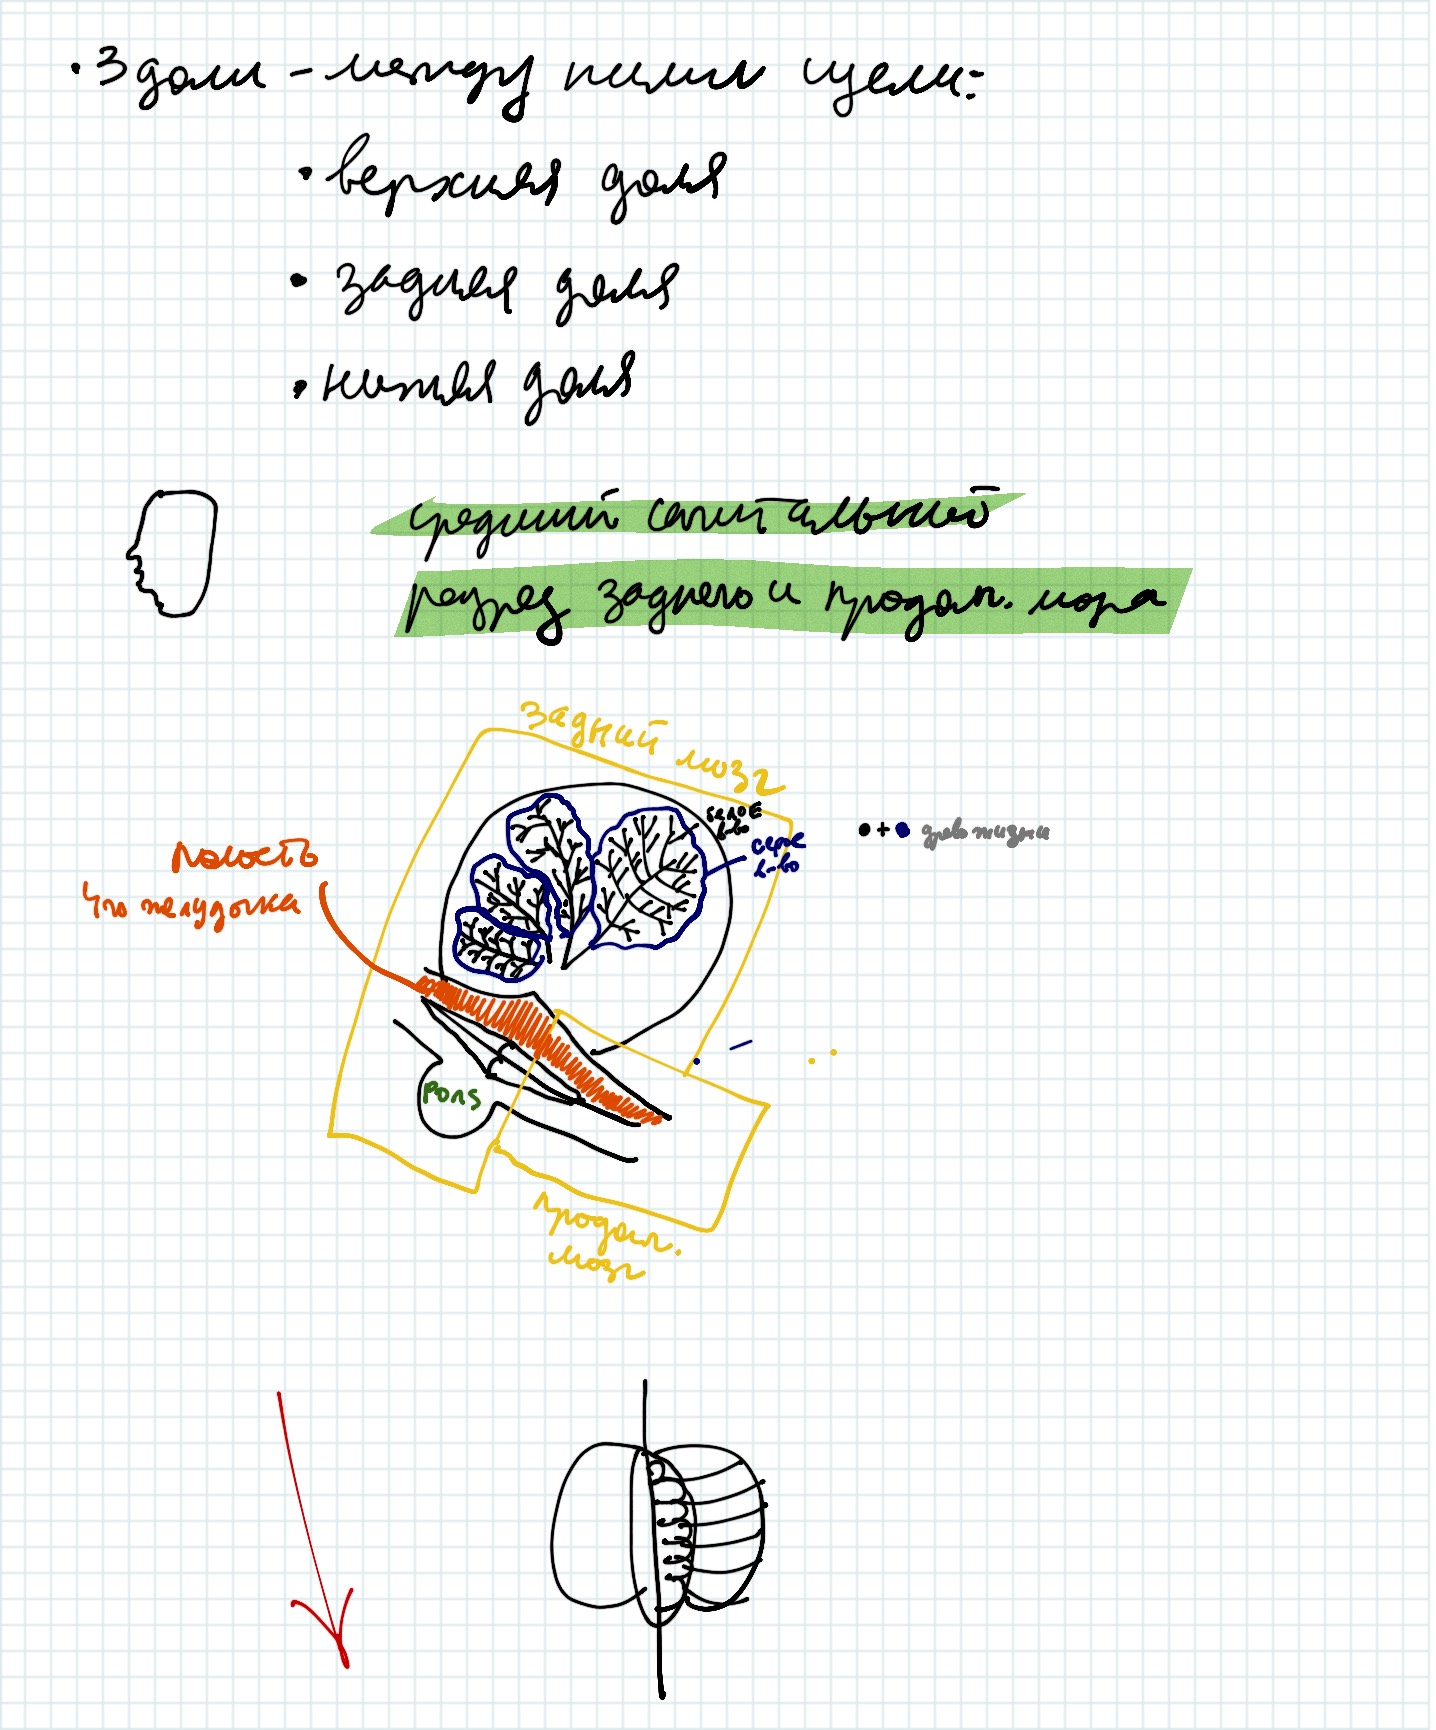 • 3 доли – между ними щели:
• верхняя доля
• задняя доля
• нижняя доля
средний сагитальный
разрез заднего и продол. мозга
задний мозг
белое
в-во
серое
в-во
• + • древо жизни
полость
4го желудочка
Pons
продол.
мозг